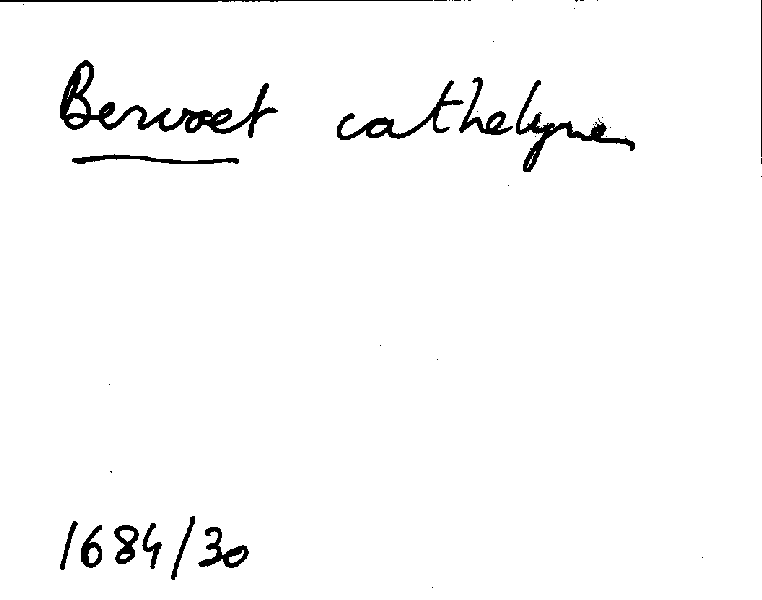 Bervoet cathelyne
1684/30